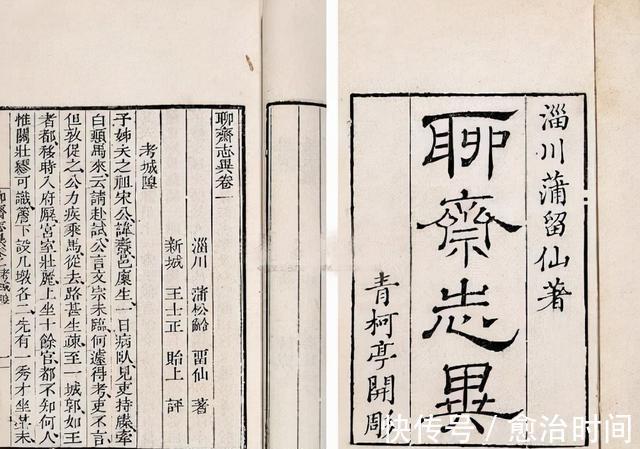 淄川蒲留仙著
聊齋志異
青柯亭開雕
聊齋志異卷一
淄川 蒲松齡 畱仙 著
新城 王士正 貽上 評
考城隍
予姊夫之祖宋公諱燾邑廩生一日病臥見吏持牒牽
白顛馬來云請赴試公言文宗未臨何遽得考吏不言
但敦促之公力疾乘馬從去路甚生疎至一城郭如王
者都移時入府廨宮室壯麗上坐十餘官都不知何人
惟關壯繆可識簷下設几墩各二先有一秀才坐其末
考城隍
快传号 / 愈治时间